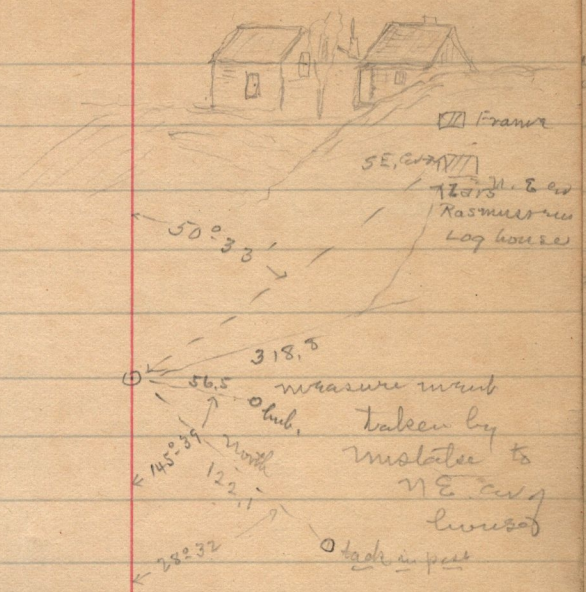 Frame
SE, Cor
Lars N. E cor
Rasmussen
Log house
50° 33'
318,8
56,5
hub,
measurement
taken by
mistake to
N E. cor of
house
145° 39
North
122,1
28° 32
tack in post